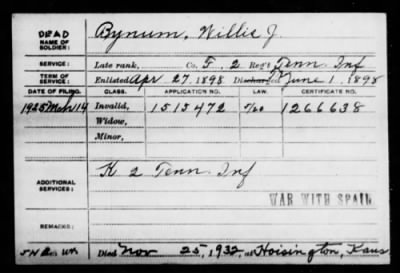 DEAD
NAME OF SOLDIER: Bynum, Willie J.
SERVICE: Late rank, Co. F, 2 Reg't Tenn Inf
TERM OF SERVICE: Enlisted Apr 27, 1898 Discharged June 1, 1898
DATE OF FILING. CLASS. APPLICATION NO. LAW. CERTIFICATE NO.
1925 Mar 14 Invalid, 1515472 1266638
Widow,
Minor,
ADDITIONAL SERVICES: K 2 Tenn. Inf
WAR WITH SPAIN
REMARKS:
Died Nov 25, 1932, at Hoisington, Kans